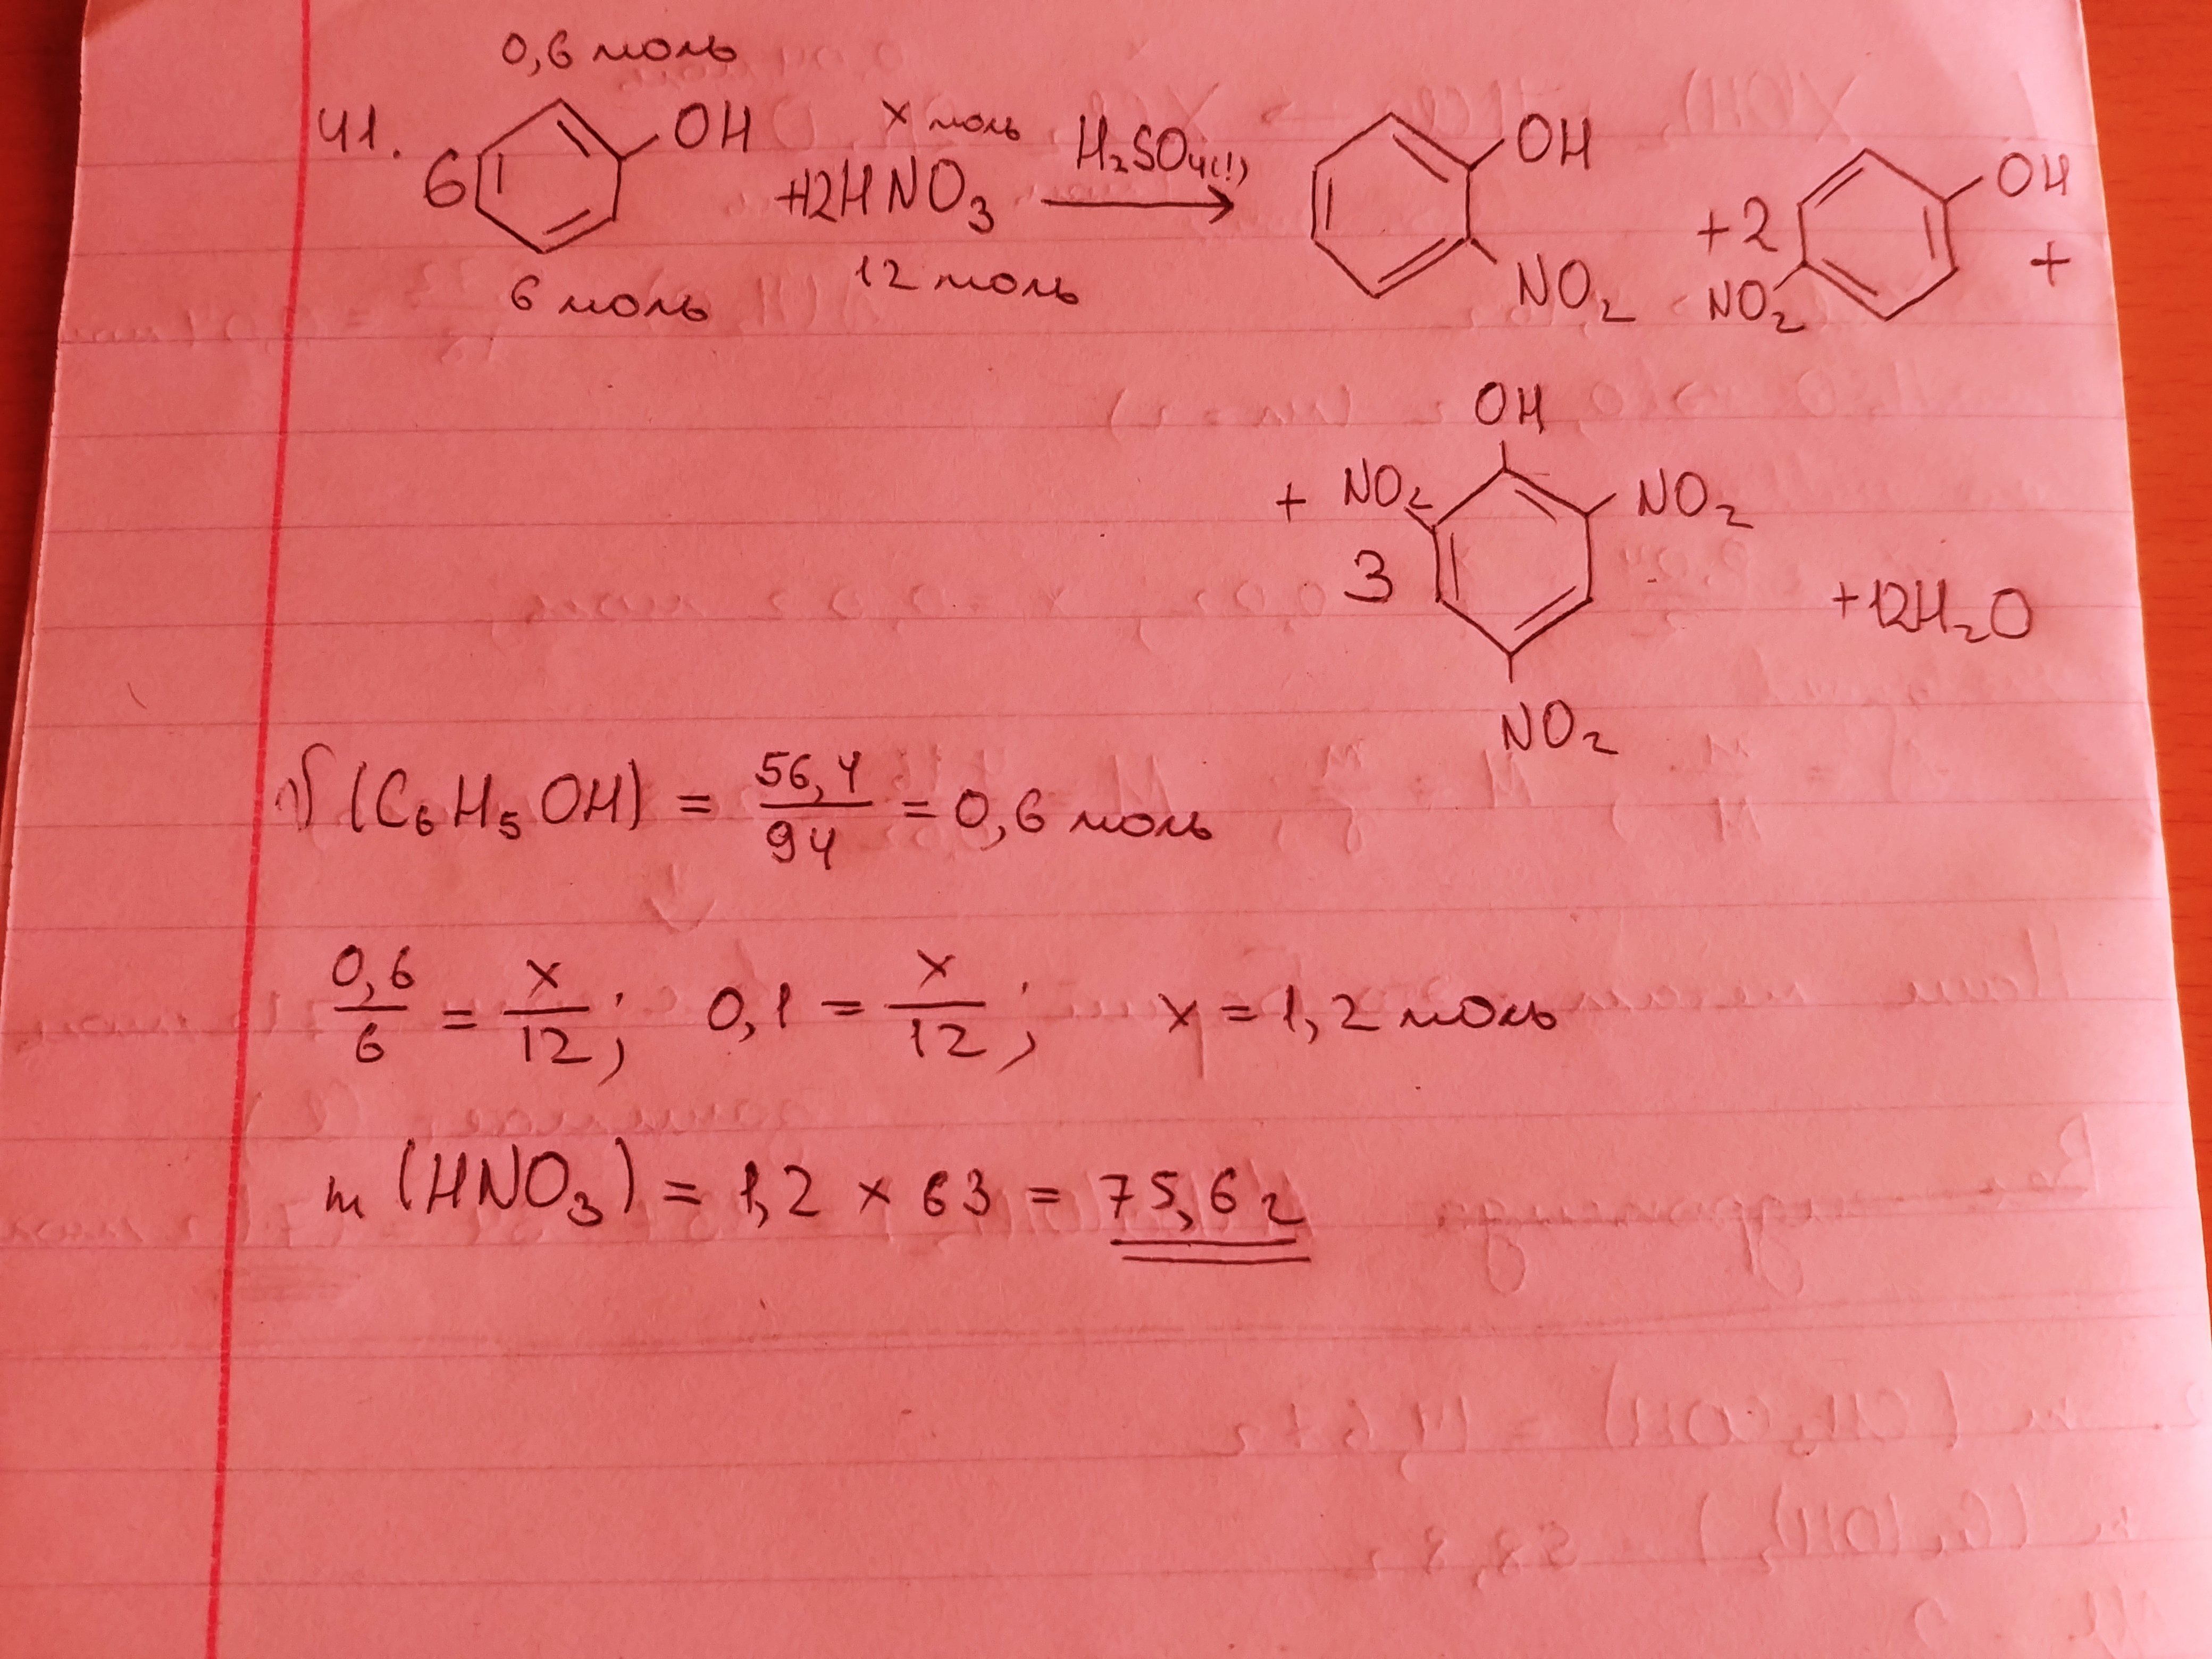 0,6 моль
41. 6 OH x моль +12HNO₃ H₂SO₄(!) → OH NO₂ +2 OH NO₂ +
6 моль 12 моль
OH
+ NO₂ NO₂
3 +12H₂O
NO₂
ν (C₆H₅OH) = 56,4/94 = 0,6 моль
0,6/6 = x/12; 0,1 = x/12; x = 1,2 моль
m (HNO₃) = 1,2 × 63 = 75,6 г